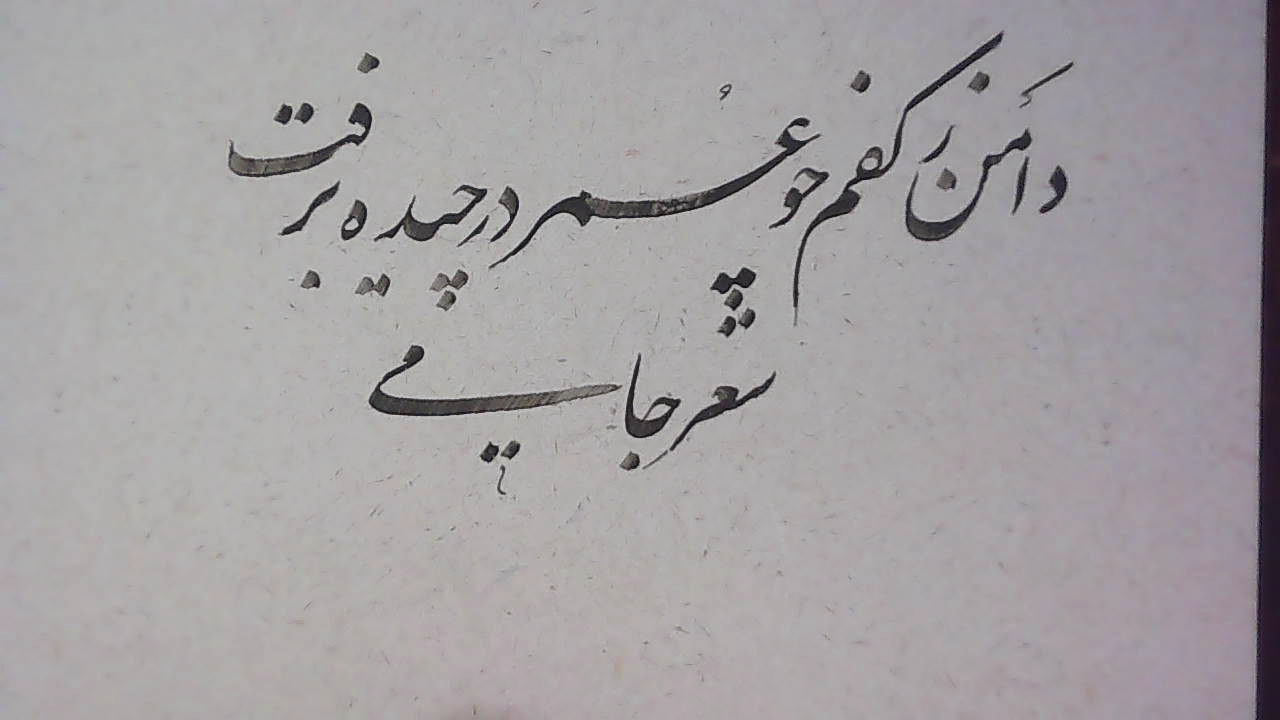 دامن ز کفم چو عُمر درچیده برفت
شعر جامی